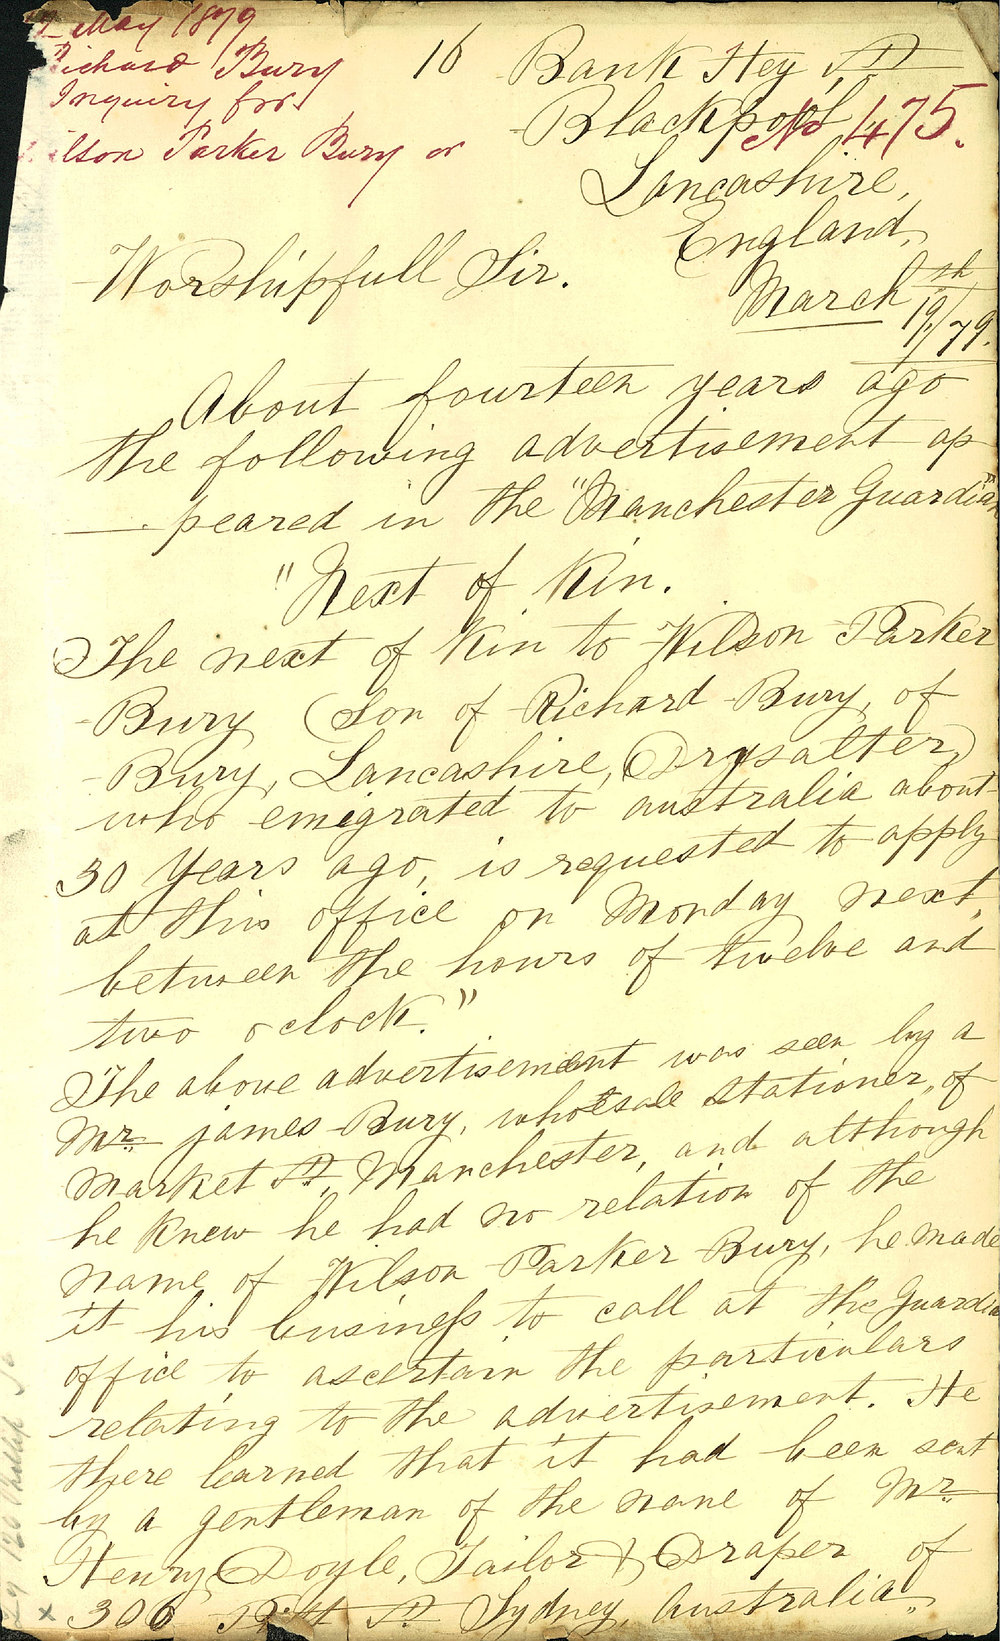 May 1879
Richard Bury
Inquiry for
Wilson Parker Bury or
16 Bank Hey St
Blackpool
No 475.
Lancashire,
England,
March 19th/79.
Worshipfull Sir.
About fourteen years ago
the following advertisement ap
peared in the "Manchester Guardian"
"Next of Kin.
The next of Kin to Wilson Parker
Bury (Son of Richard Bury, of
Bury, Lancashire, Drysalter,)
who emigrated to australia about
30 Years ago, is requested to apply
at this office on Monday next,
between the hours of twelve and
two oclock."
The above advertisement was seen by a
Mr. james Bury, wholesale Stationer, of
Market St, Manchester, and although
he knew he had no relation of the
name of Wilson Parker Bury, he made
it his business to call at the Guardian
office to ascertain the particulars
relating to the advertisement. He
there learned that it had been sent
by a gentleman of the name of Mr.
Henry Doyle, Tailor & Draper of
x 306 Pitt St Sydney, australia.
126 Phillip St